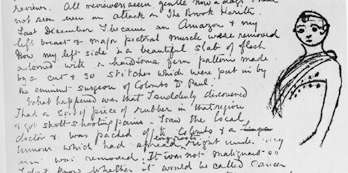 reviews. All reviewers seem gentle nowadays. I have
not seen even an attack on The Brook Kerith.
Last December I became an Amazon & my
left breast & major pectoral muscle were removed.
Now my left side is a beautiful slab of flesh
adorned with a handsome fern pattern made
by a cut & 30 stitches which were put in by
the eminent surgeon of Colombo Dr Paul.
What happened was that I suddenly discovered
I had a sort of piece of rubber in that region
& got shooting pains. I saw the local
doctor & was packed off to Colombo & a
tumour which had spread right under my
arm was removed. It was not malignant so
I don't know whether it would be called Cancer